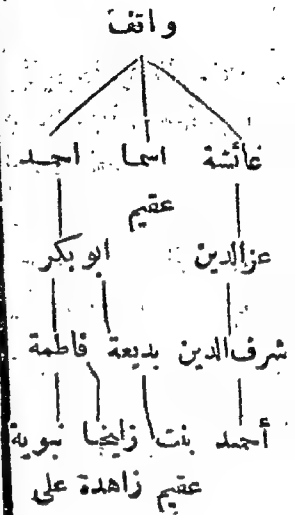 واقف
عائشة اسما احمد
عقيم
عزالدين ابو بكر
شرف الدين بديعة فاطمة
أحمد بنت زليخا نبوية
عقيم زاهدة على